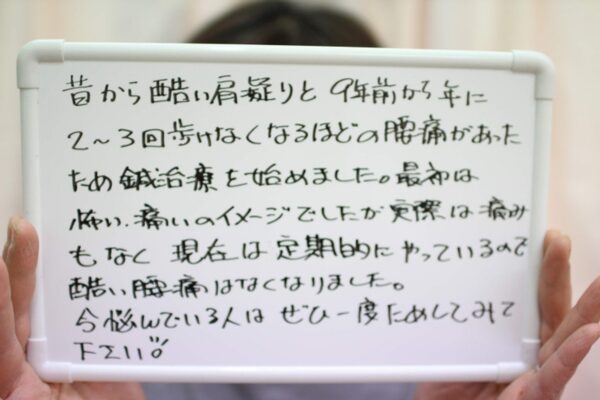 昔から酷い肩凝りと 9年前から年に
2〜3回歩けなくなるほどの腰痛があった
ため鍼治療を始めました。最初は
怖い、痛いのイメージでしたが実際は痛み
もなく 現在は定期的にやっているので
酷い腰痛はなくなりました。
今悩んでいる人は ぜひ一度ためしてみて
下さい